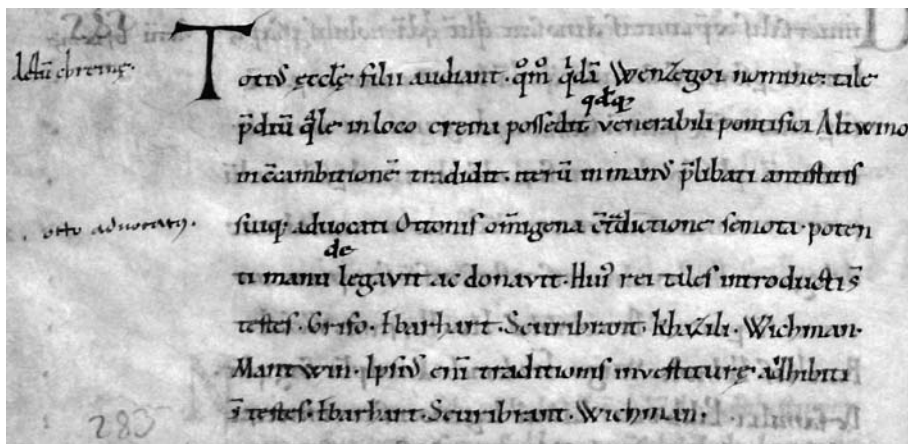 283
Totiꝰ ęccłę filii audiant · qͦm qͥdā Wenzegoi nomine tale
actū ebreinę.
qd̄q;
p̄diū q̄le in loco creini possedit venerabili pontifici Altwino
in c̄cambitionē tradidit. iterū in manꝰ p̄libati antistitis
otto aduocatꝰ.
suiq; aduocati Ottonis om̄igena c̄t̄dictione semota poten
de
ti manu legavit ac donavit. Huiꝰ rei tales introducti s̄
testes. Griso. Ebarhart. Scuribrant. khazili. Wichman.
Mantwin. Ipsiꝰ eni̅ traditionis investiturę adhibiti
s̄ testes. Ebarhart. Scuribrant. Wichman.
283